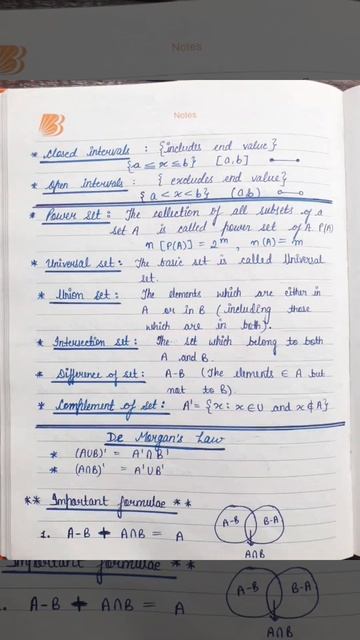 Notes
Notes
* Closed intervals : {includes end value}
{a ≤ x ≤ b} [a,b]
* Open intervals : { excludes end value}
{a < x < b} (a,b)
* Power set : The collection of all subsets of a
set A is called power set of A. P(A)
n [P(A)] = 2^m , n(A) = m
* Universal set : The basic set is called Universal
set.
* Union set : The elements which are either in
A or in B (including those
which are in both).
* Intersection set : The set which belong to both
A and B.
* Difference of set : A-B (The elements ∈ A but
not to B).
* Complement of set : A' = {x : x ∈ U and x ∉ A}
De Morgan's Law
* (A∪B)' = A'∩B'
* (A∩B)' = A'∪B'
** Important formulae **
1. A-B + A∩B = A
A-B B-A
A∩B
Important formulae **
. A-B + A∩B = A
A-B B-A
A∩B